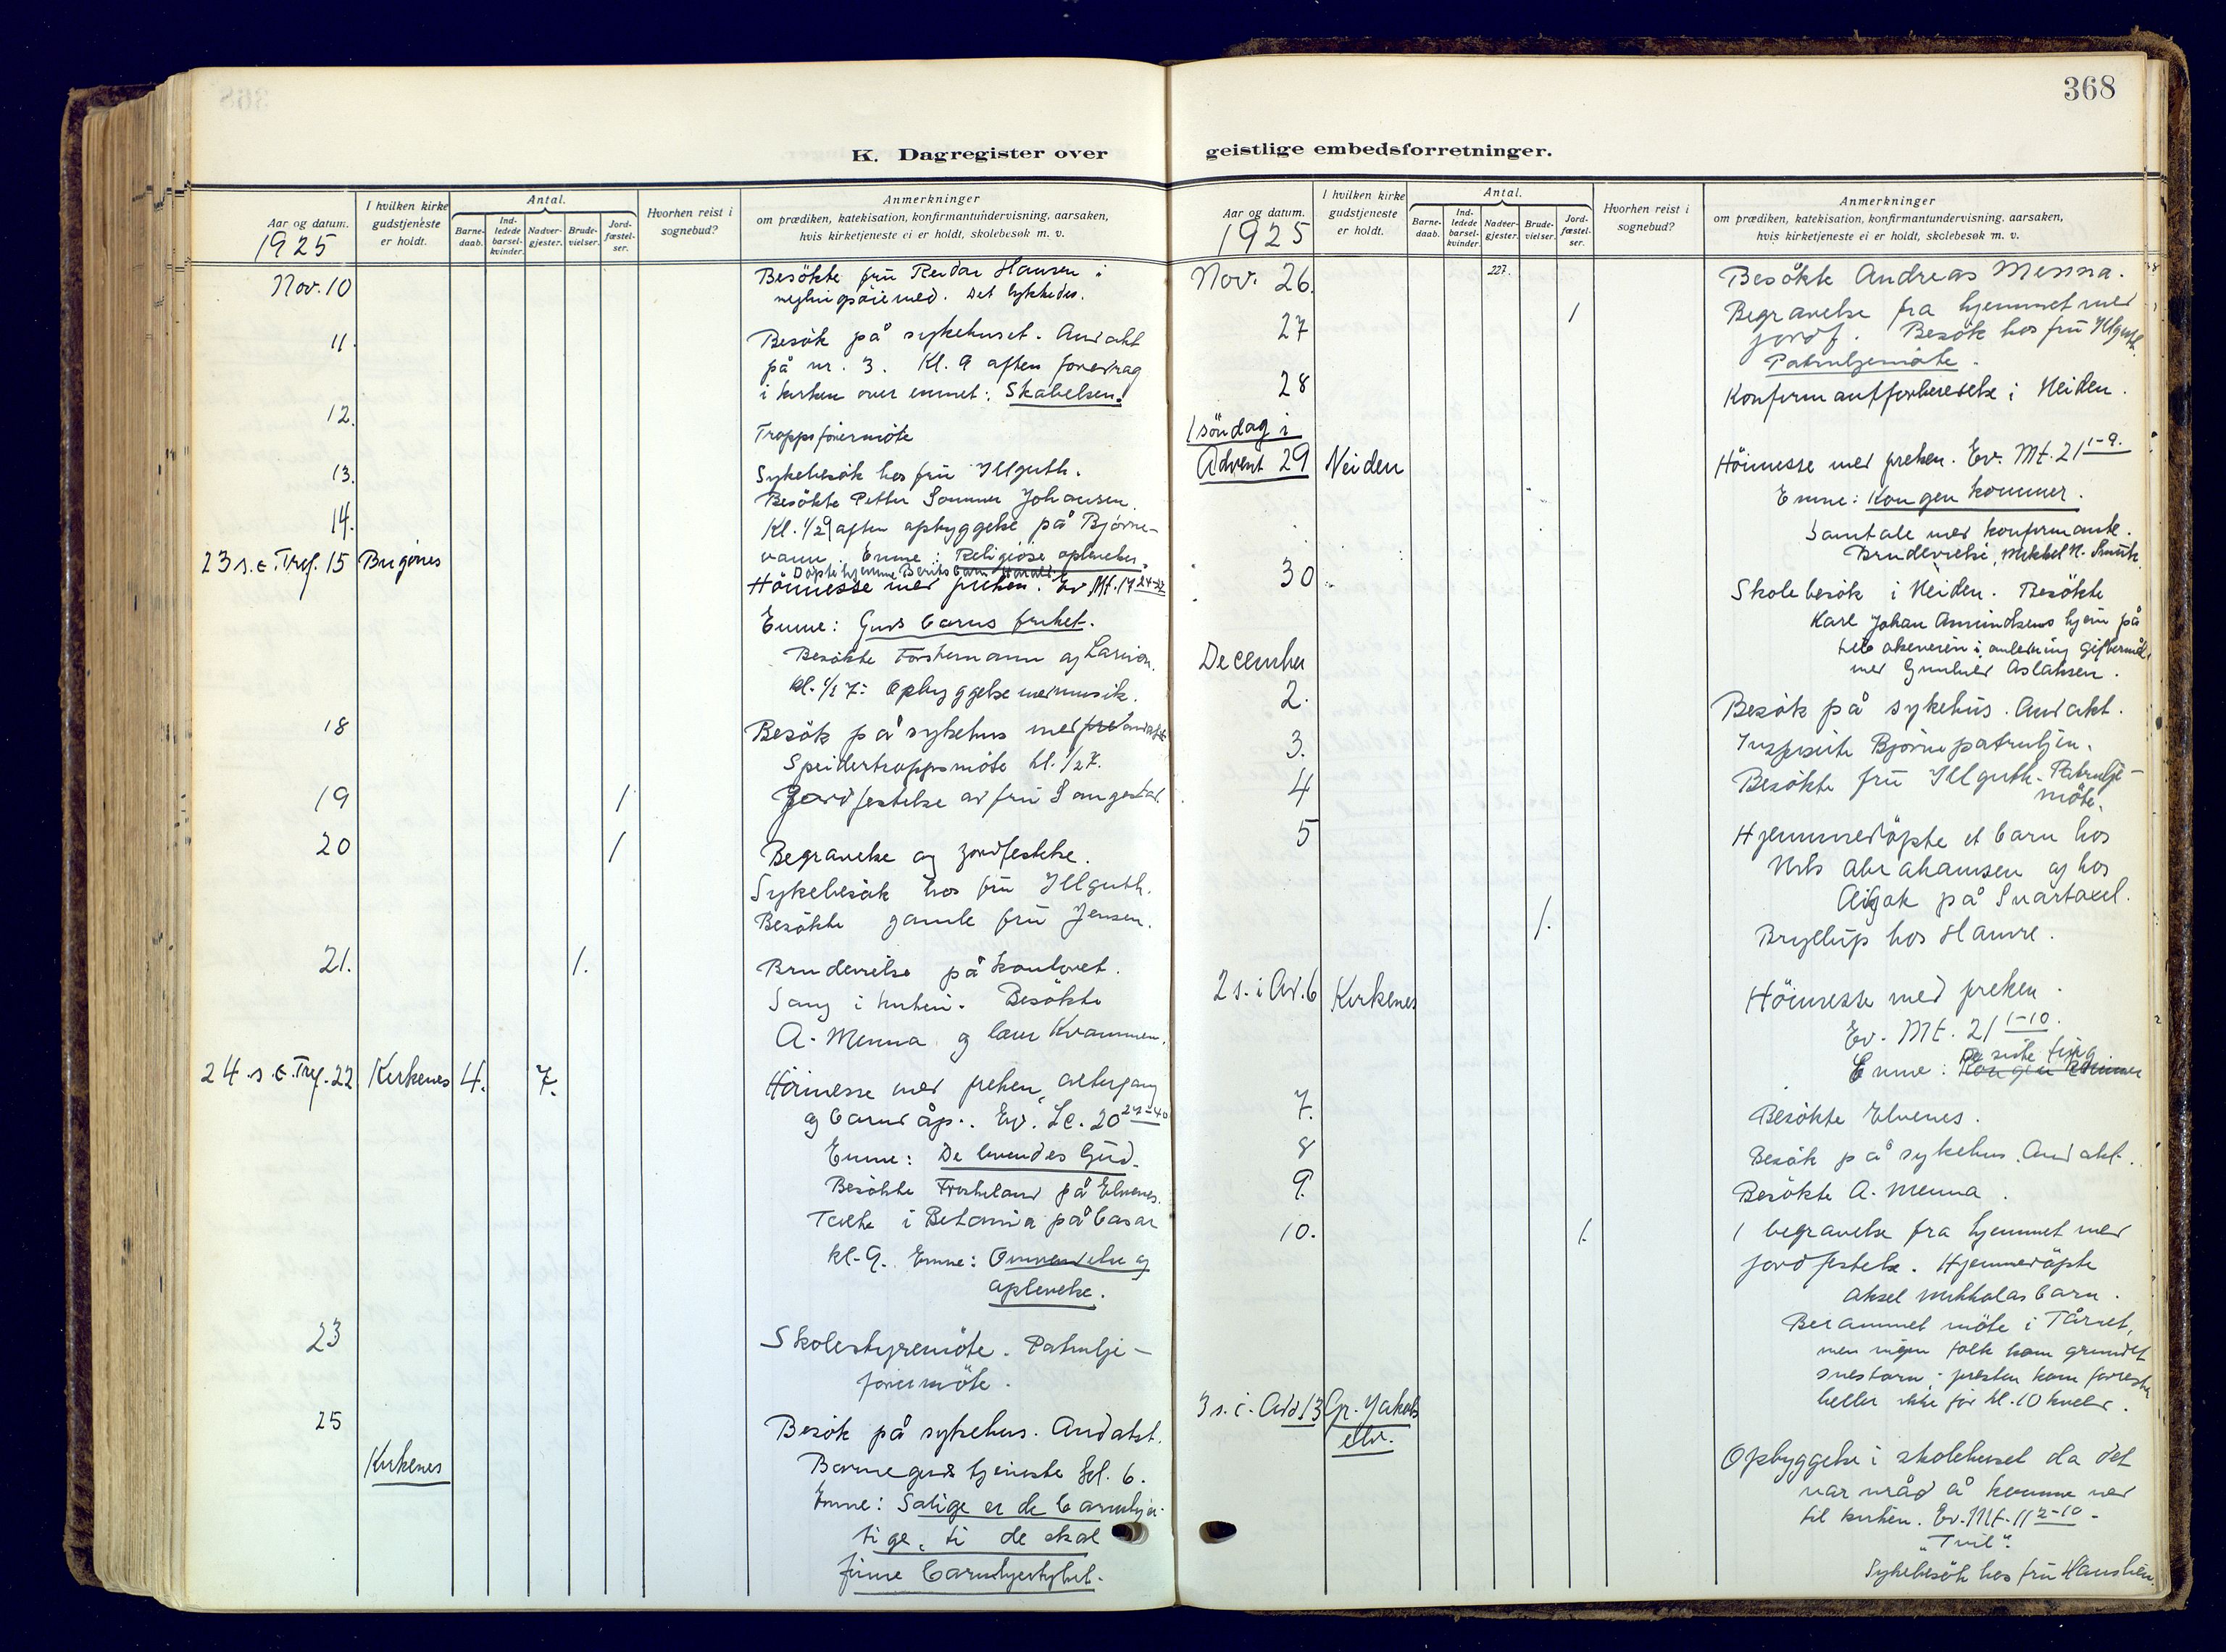 368
K. Dagregister over
geistlige embedsforretninger.
Aar og datum.
1925
I hvilken kirke
gudstjeneste
er holdt.
Antal.
Barne-
daab.
Ind-
ledede
barsel-
kvinder.
Nadver-
gjester.
Brude-
vielser.
Jord-
fæstel-
ser.
Hvorhen reist i
sognebud?
Anmerkninger
om prædiken, katekisation, konfirmantundervisning, aarsaken,
hvis kirketjeneste ei er holdt, skolebesøk m. v.
Nov. 10
Besökte fru Reidar Hansen i
meglingsöiemed. Det lykkedes.
11.
Besök på sykehuset. Andakt
på nr. 3. Kl. 9 aften foredrag
i kirken over emnet: Skabelsen.
12.
Troppsförermöte
13.
Sykebesök hos fru Illguth.
Besökte Petter Sommer Johansen.
14.
Kl. 1/2 9 aften opbyggelse på Björne-
vann. Emne: Religiöse oplevelser.
23 s. e. Tref. 15 Bugönes
Döpte hjemme Berits barn Harald.
Höimesse med preken. Ev. Mt.
Emne: Guds barns frihet.
Besökte Forstemann og Larsion.
Kl. 1/2 7: Opbyggelse med musik.
18
Besök på sykehus med andakt
Speidertroppsmöte kl. 1/2 7.
19 1
Jordfestelse av fru Langestad.
20 1
Begravelse og jordfestelse.
Sykebesök hos fru Illguth.
Besökte gamle fru Jensen.
21. 1.
Brudevielse på kontoret.
Sang i kirken. Besökte
A. Menna og lærer Kvammen.
24. s. e. Tref. 22 Kirkenes 4. 7.
Höimesse med preken, altergang
og barndåp. Ev. Lc. 20 27-40
Emne: De levendes Gud.
Besökte Frosteland på Elvenes.
Talte i Betania på basar
kl. 9. Emne: Omvendelse og
oplevelse.
23
Skolestyremöte. Patrulje-
förermöte.
25
Besök på sykehus. Andakt.
Kirkenes
Barnegudstjeneste kl. 6.
Emne: Salige er de barmhjer-
tige, ti de skal
finne barmhjertighet.
368
Aar og datum.
1925
I hvilken kirke
gudstjeneste
er holdt.
Antal.
Barne-
daab.
Ind-
ledede
barsel-
kvinder.
Nadver-
gjester.
Brude-
vielser.
Jord-
fæstel-
ser.
Hvorhen reist i
sognebud?
Anmerkninger
om prædiken, katekisation, konfirmantundervisning, aarsaken,
hvis kirketjeneste ei er holdt, skolebesøk m. v.
Nov. 26. 227.
Besökte Andreas Menna.
27 1
Begravelse fra hjemmet med
jordf. Besök hos fru Illguth.
Patruljemöte.
28
Konfirmantforberedelse i Neiden.
1 söndag i
Advent 29 Neiden
Höimesse med preken. Ev. Mt. 21 1-9.
Emne: Kongen kommer.
Samtale med konfirmante.
Brudevielse, Mikkel N. Smuk.
30
Skolebesök i Neiden. Besökte
Karl Johan Amundsens hjem på
i anledning giftermål
med Gunhild Aslaksen.
December
2.
Besök på sykehus. Andakt.
3.
Inspiserte Björnepatruljen.
4
Besökte fru Illguth. Patrulje-
möte.
5
Hjemmedöpte et barn hos
Nils Abrahamsen og hos
Aigok på Svartaxel.
1.
Bryllup hos Hamre.
2 s. i Av. 6 Kirkenes
Höimesse med preken.
Ev. Mt. 21 1-10.
De siste ting
Emne: Kongen kommer
7.
Besökte Elvenes.
8
Besök på sykehus. Andakt.
9.
Besökte A. Menna.
10. 1.
1 begravelse fra hjemmet med
jordfestelse. Hjemmedöpte
Aksel Mikkolas barn.
Berammet möte i Tårnet,
men ingen folk kom grundet
snestorm. presten kom forresten
heller ikke för kl. 10 kveld.
3 s. i. Adv. 13 Gr. Jakobs
elv.
Opbyggelse i skolehuset da det
var uråd å komme ned
til kirken. Ev. Mt. 11 2-10.
"Tvil".
Sykebesök hos fru